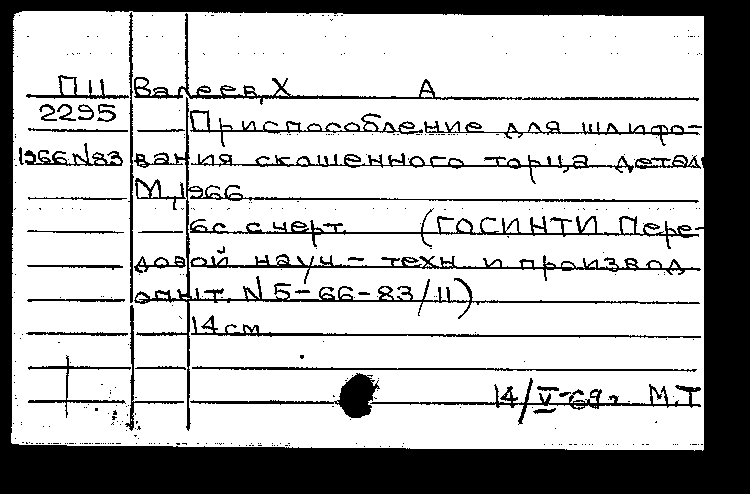 П11 Валеев, Х А
2295 Приспособление для шлифо-
1966 N83 вания скошенного торца детали
М, 1966
6с с черт. (ГОСИНТИ Пере-
довой науч - техн и производ
опыт. N 5-66-83/11)
14 см
14/V-69г М.Т